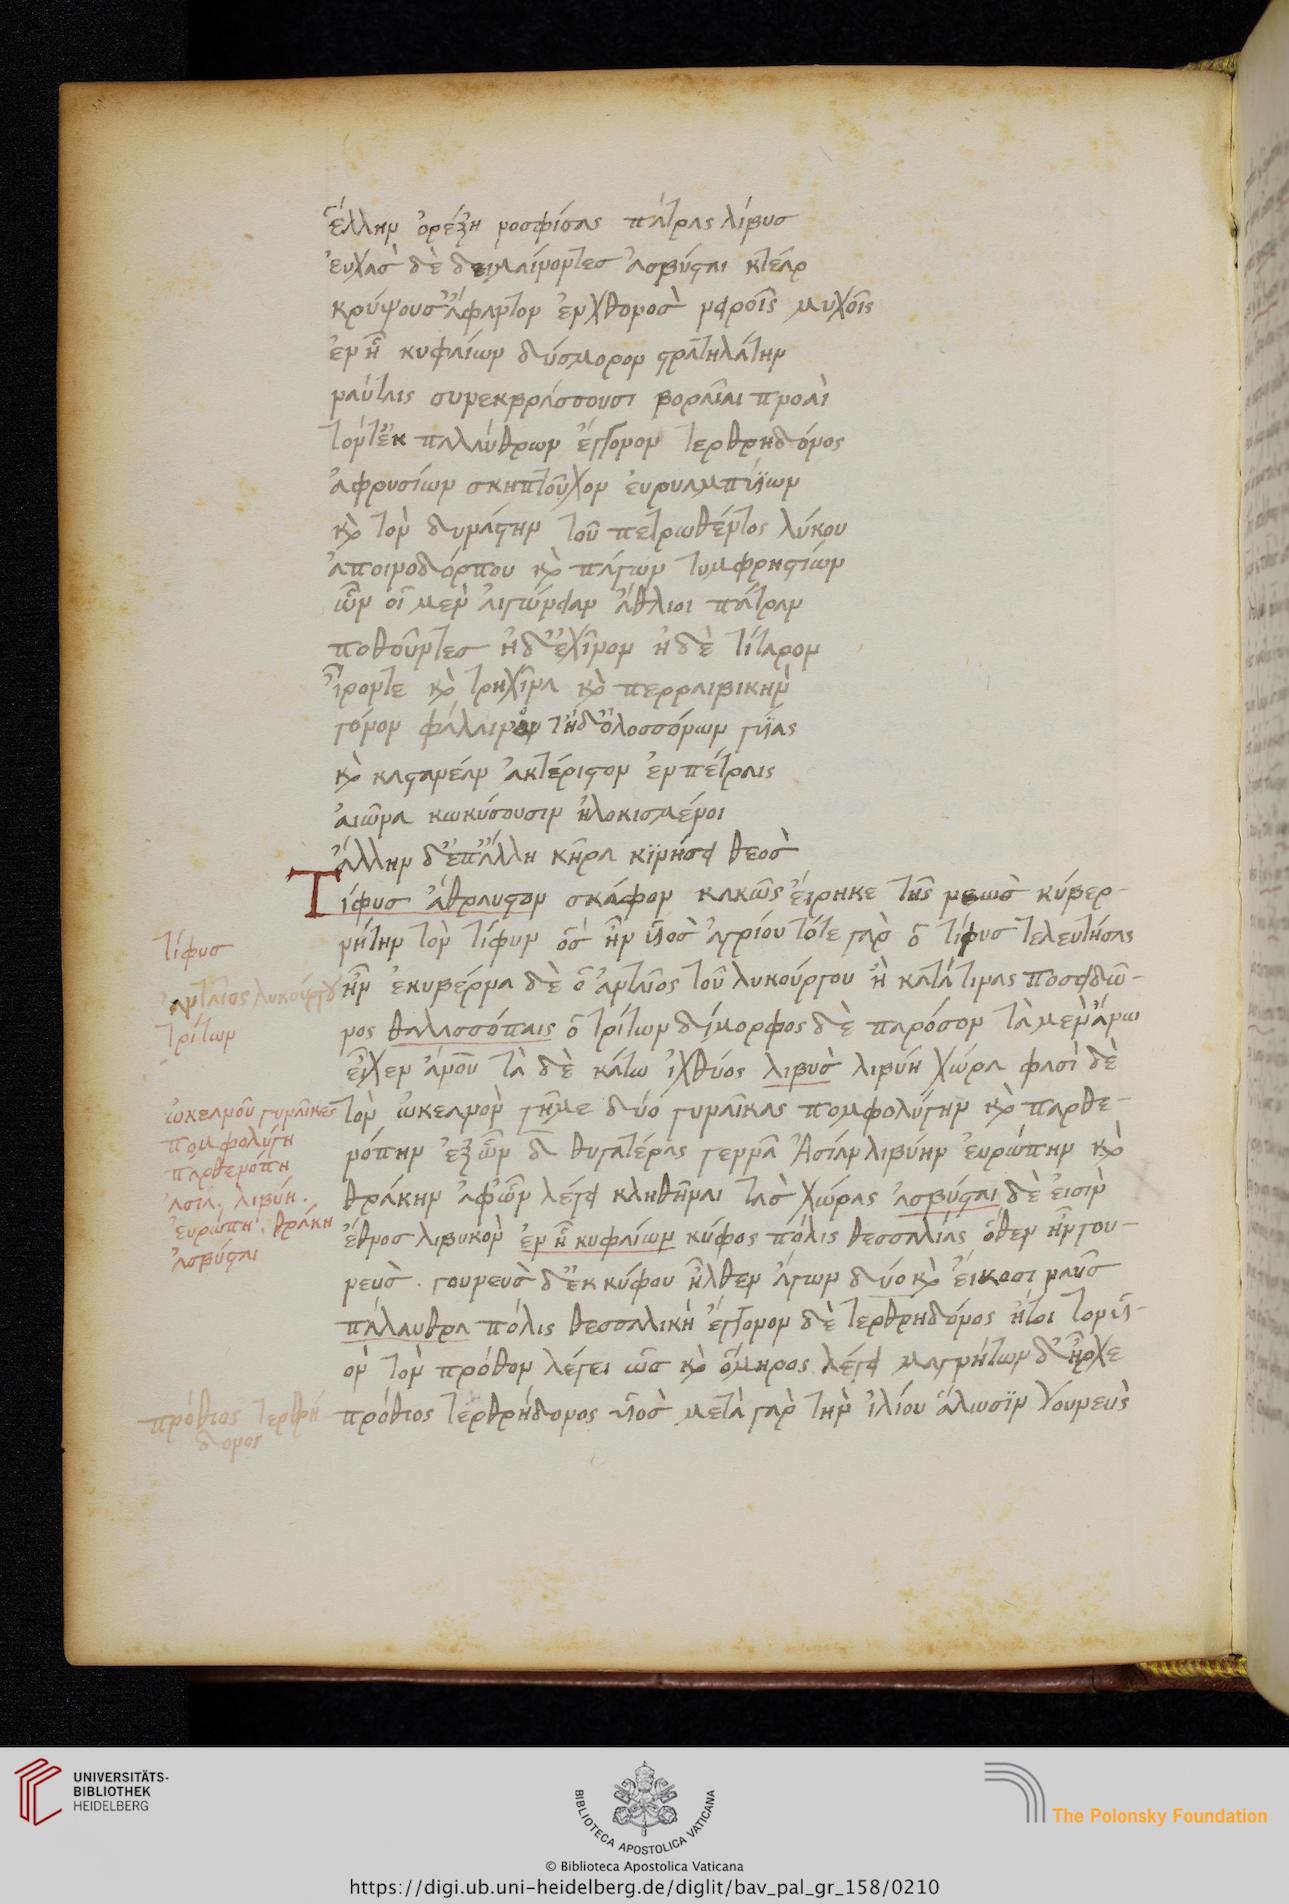 ἕλλην ὀρέξῃ νοσφίσας πάτρας λίβυσ
ἐυχὰσ δὲ δειμαίνοντεσ ἀσβύσται κτέαρ
κρύψουσ ἄφαντον ἐν χθονὸσ νειροῖς μυχοῖς
ἐν ᾗ κυφαίων δύσμορον στρατηλάτην
ναύταις συνεκβράσσουσι βορραῖαι πνοαὶ
τόν τ' ἐκ παλαύθρων ἔγγονον τερθρηδόνος
ἀμφρυσίων σκηπτοῦχον ἐυρυαμπίων
καὶ τὸν δυνάστην τοῦ πετρωθέντος λύκου
ἀποινοδόρπου καὶ πάγων τυμφρηστίων
ὧν οἳ μὲν ἀιγώνειαν ἄθλιοι πάτραν
ποθοῦντεσ ἠ δ' ἐχῖνον ἠ δὲ τίταρον
ἶρόν τε καὶ τρηχῖνα καὶ περραιβικὴν
γόνον φάλαννον τ' ἠ δ' ὀλοσσόνων γύας
καὶ καστανέαν ἀκτέριστον ἐν πέτραις
ἀιῶνα κωκύσουσιν ἠλοκισμένοι
ἄλλην δ' ἐπ' ἄλλῃ κῆρα κϊνήσει θεὸσ
Τίφυσ ἄθραυστον σκάφον κακῶς εἴρηκε τῆς νεὼσ κύβερ-
νήτην τὸν τίφυν ὅσ ἦν υἱὸσ ἁγνίου τότε γὰρ ὁ τίφυσ τελευτήσας
ἦν ἐκυβέρνα δὲ ὁ ἀνταῖος τοῦ λυκούργου ἢ κατά τινας ποσειδῶ-
νος θαλασσόπαις ὁ τρίτων δίμορφος δὲ παρόσον τὰ μὲν ἄνω
εἶχεν ἀνοῦ τὰ δὲ κάτω ἰχθύος λιβυσ λιβύη χώρα φασὶ δὲ
τὸν ὠκεανὸν γῆμε δύο γυναῖκας πομφολύγην καὶ παρθε-
νόπην ἐξ ὧν δ θυγατέρας γεννᾶ ἀσίαν λιβύην ἐυρώπην καὶ
θράκην ἀφ' ὧν λέγει κληθῆναι τὰσ χώρας ἀσβύσται δὲ ἐισὶν
ἔθνοσ λιβυκὸν ἐν ᾗ κυφαίων κύφος πόλις θεσσαλίας ὅθεν ἦν γου-
νευσ. γουνεὺσ δ' ἐκ κύφου ἦλθεν ἄγων δύο καὶ ἐίκοσι ναῦσ
πάλαυθρα πόλις θεσσαλικὴ ἔγγονον δὲ τερθρηδόνος ἤτοι τὸν υἱ-
ὸν τὸν πρόθον λέγει ὥσ καὶ ὅμηρος λέγει μαγνήτων δ' ἦρχε
πρόθιος τερθρήδονος υἱὸσ μετὰ γὰρ τὴν ἰλίου ἅλωσϊν γουνεὺς
τίφυσ
ἀνταῖος λυκούργου
τρίτων
ὠκεανοῦ γυναῖκες
πομφολύγη
παρθενόπη
ἀσία. λιβύη.
ἐυρώπη. θράκη
ἀσβύσται
πρόθιος τερθρή
δονος
UNIVERSITÄTS-
BIBLIOTHEK
HEIDELBERG
BIBLIOTECA APOSTOLICA VATICANA
The Polonsky Foundation
© Biblioteca Apostolica Vaticana
https://digi.ub.uni-heidelberg.de/diglit/bav_pal_gr_158/0210